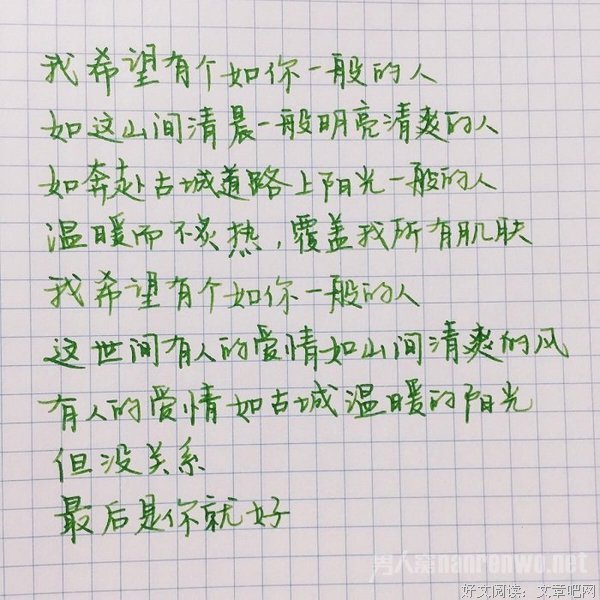 我希望有个如你一般的人
如这山间清晨一般明亮清爽的人
如奔赴古城道路上阳光一般的人
温暖而不炙热,覆盖我所有肌肤
我希望有个如你一般的人
这世间有人的爱情如山间清爽的风
有人的爱情如古城温暖的阳光
但没关系
最后是你就好
男人窝nanrenwo.net
好文阅读:文章吧网